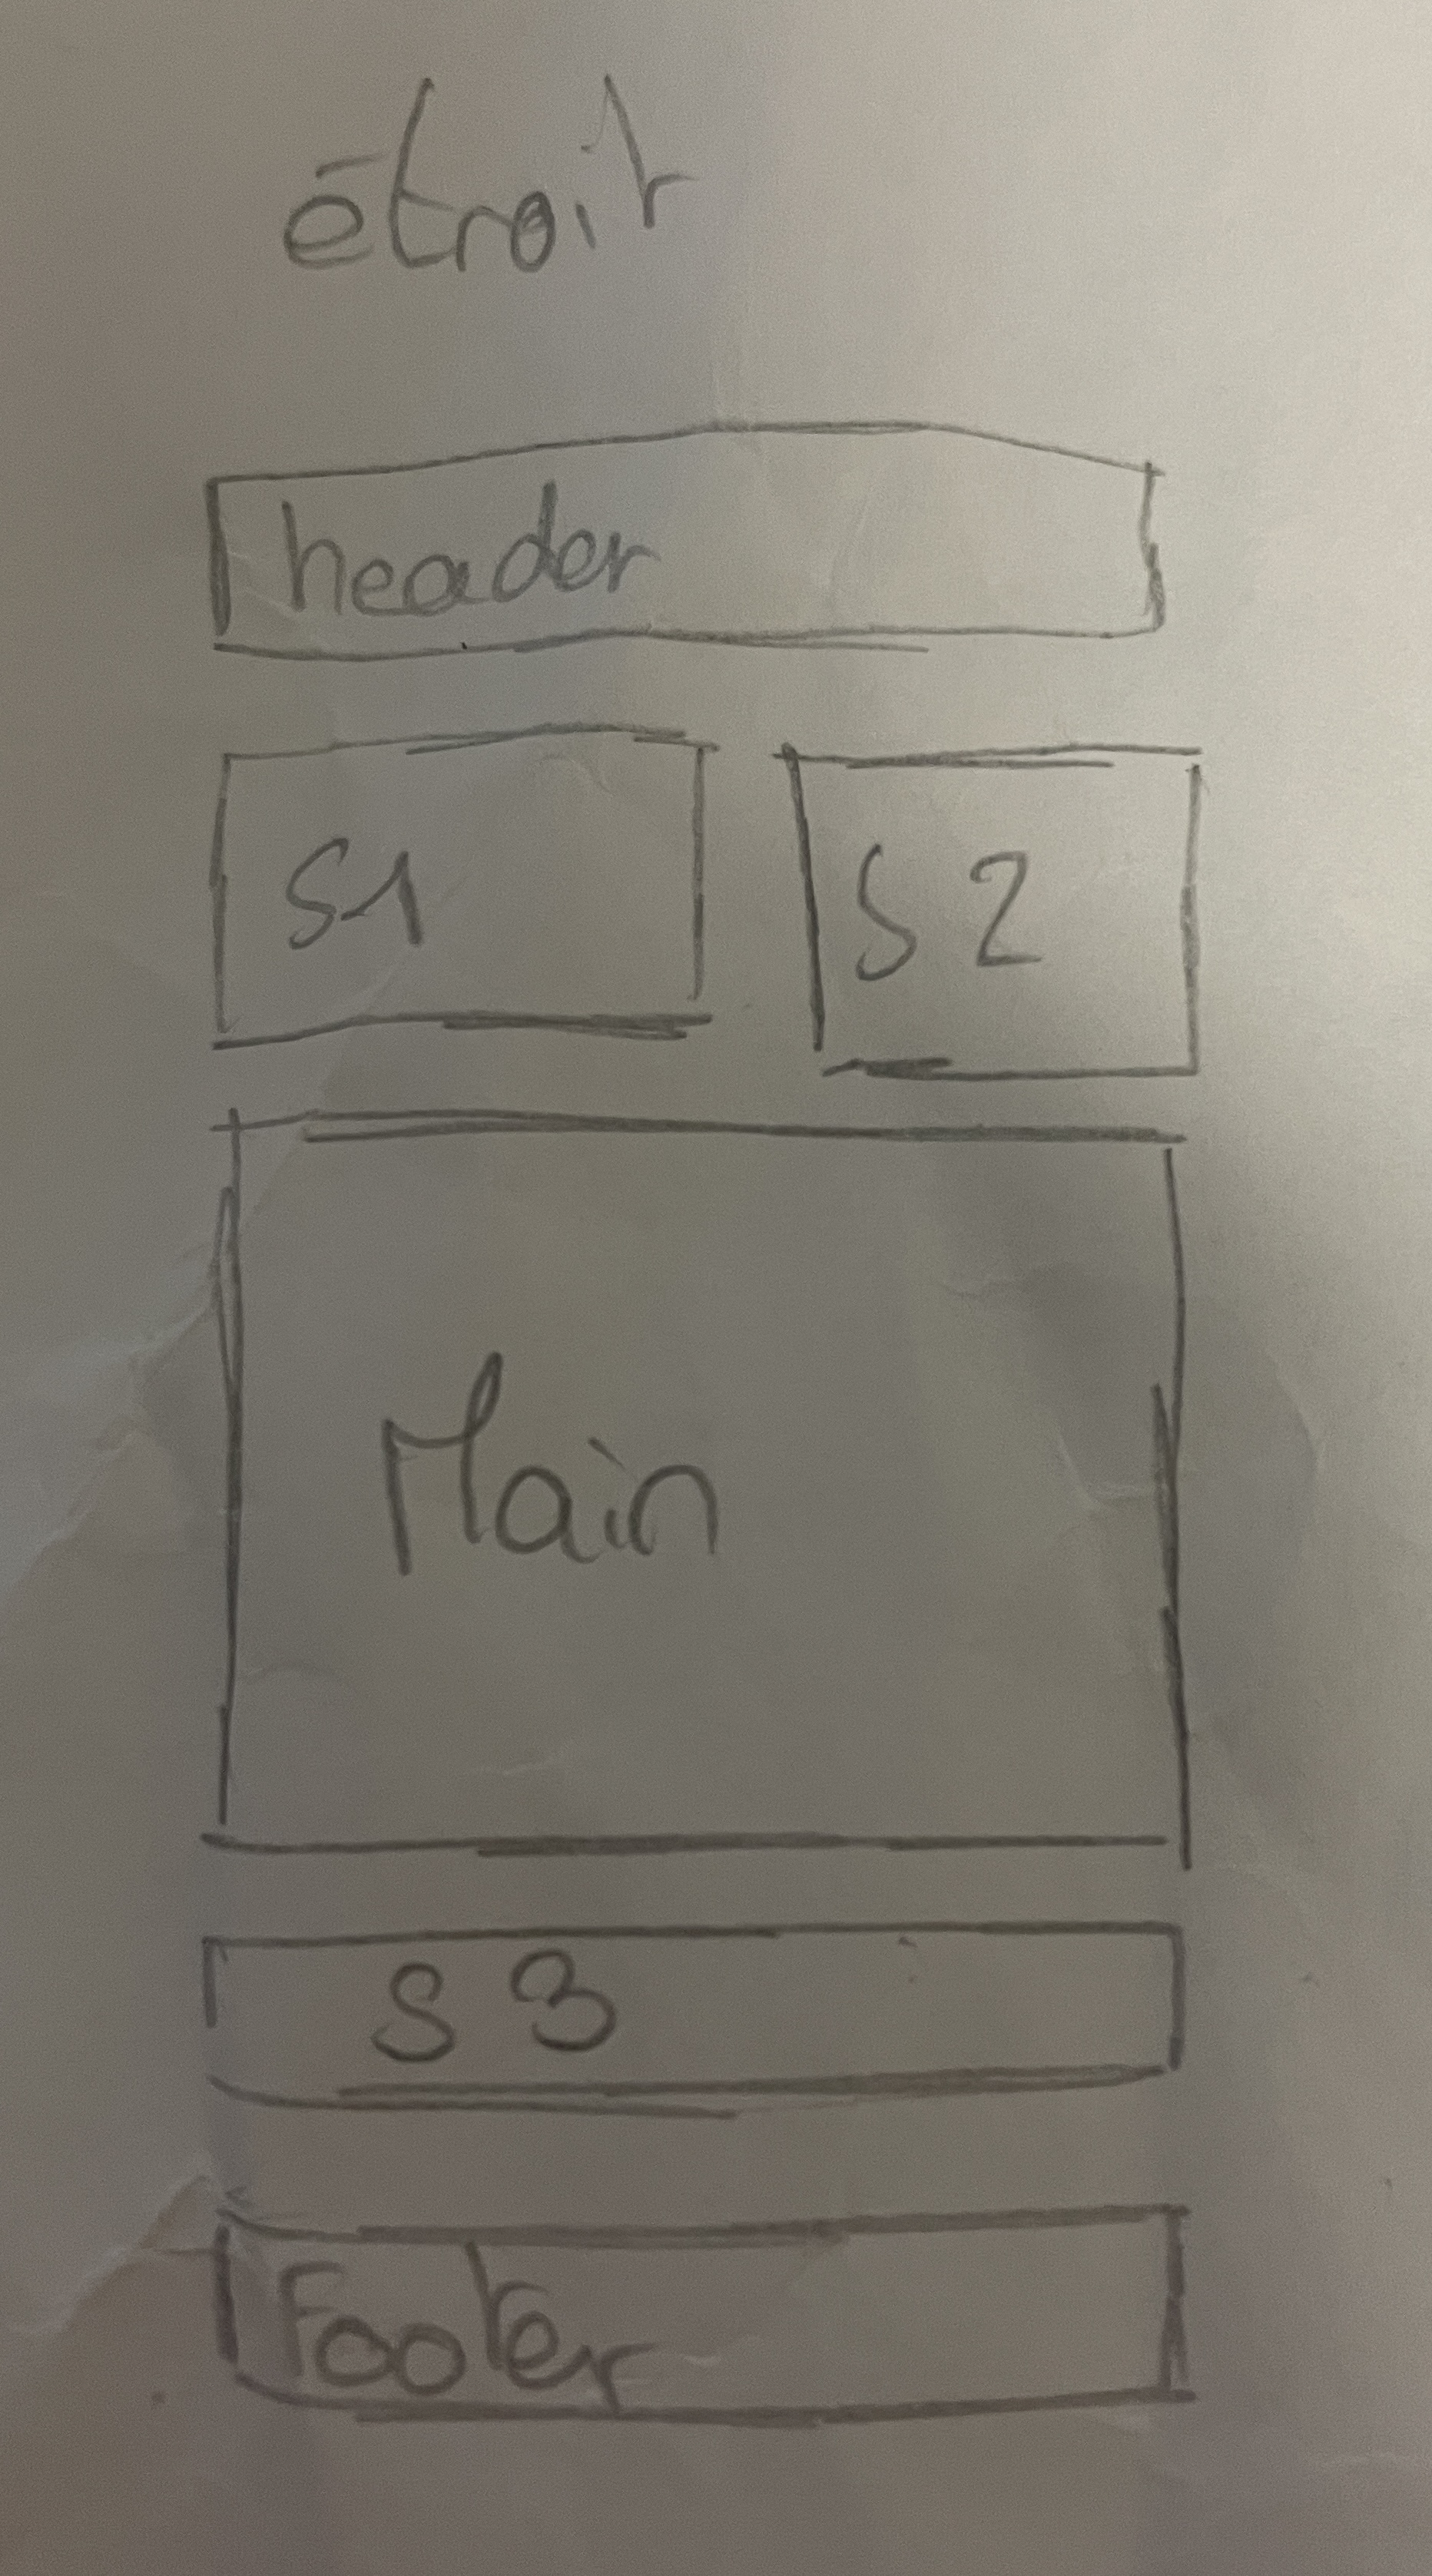 étroit
header
S1 S2
Main
S3
Footer